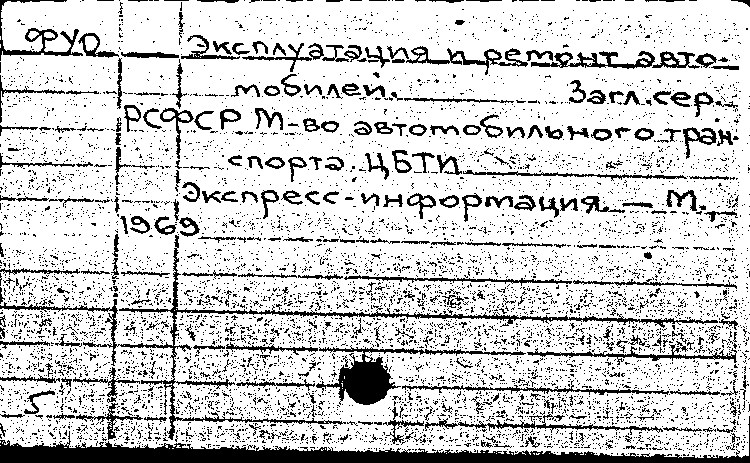 ФУО Эксплуатация и ремонт авто-
мобилей. Загл.сер.
РСФСР М-во автомобильного тран-
спорта. ЦБТИ.
Экспресс-информация. — М.,
1969
5